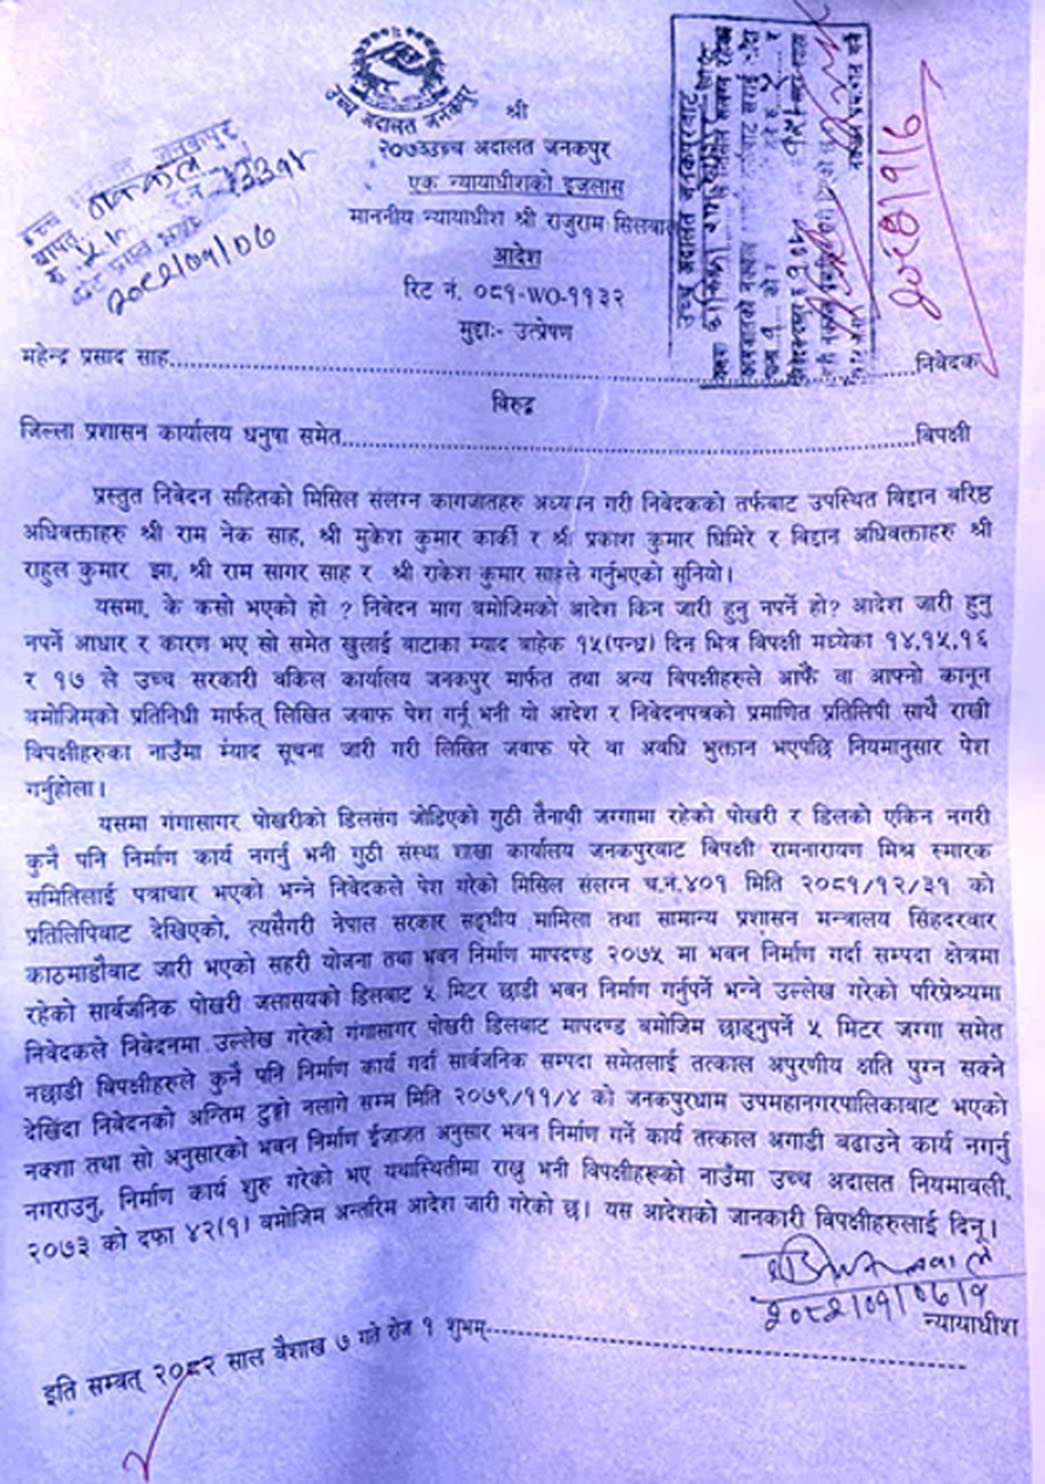 उच्च अदालत जनकपुर
श्री
२०७३उच्च अदालत जनकपुर
एक न्यायाधीशको इजलास
माननीय न्यायाधीश श्री राजुराम सिलवाल
आदेश
रिट नं. ०८१-WO-११३२
मुद्दाः- उत्प्रेषण
२०८२/०१/०७
महेन्द्र प्रसाद साह................निवेदक
विरुद्ध
जिल्ला प्रशासन कार्यालय धनुषा समेत................विपक्षी
प्रस्तुत निवेदन सहितको मिसिल संलग्न कागजातहरु अध्ययन गरी निवेदकको तर्फबाट उपस्थित विद्वान वरिष्ठ
अधिवक्ताहरु श्री राम नेक साह, श्री मुकेश कुमार कार्की र श्री प्रकाश कुमार घिमिरे र विद्वान अधिवक्ताहरु श्री
राहुल कुमार झा, श्री राम सागर साह र श्री राकेश कुमार साहले गर्नुभएको सुनियो।
यसमा, के कसो भएको हो ? निवेदन माग बमोजिमको आदेश किन जारी हुनु नपर्ने हो? आदेश जारी हुनु
नपर्ने आधार र कारण भए सो समेत खुलाई बाटाका म्याद बाहेक १५(पन्ध्र) दिन भित्र विपक्षी मध्येका १४,१५,१६
र १७ ले उच्च सरकारी वकिल कार्यालय जनकपुर मार्फत तथा अन्य विपक्षीहरुले आफैं वा आफ्नो कानून
बमोजिमको प्रतिनिधी मार्फत् लिखित जवाफ पेश गर्नू भनी यो आदेश र निवेदनपत्रको प्रमाणित प्रतिलिपी साथै राखी
विपक्षीहरुका नाउँमा म्याद सूचना जारी गरी लिखित जवाफ परे वा अवधि भुक्तान भएपछि नियमानुसार पेश
गर्नुहोला।
यसमा गंगासागर पोखरीको डिलसंग जोडिएको गुठी तैनाथी जग्गामा रहेको पोखरी र डिलको एकिन नगरी
कुनै पनि निर्माण कार्य नगर्नु भनी गुठी संस्था शाखा कार्यालय जनकपुरबाट विपक्षी रामनारायण मिश्र स्मारक
समितिलाई पत्राचार भएको भन्ने निवेदकले पेश गरेको मिसिल संलग्न च.नं.४०१ मिति २०८१/१२/३१ को
प्रतिलिपिबाट देखिएको, त्यसैगरी नेपाल सरकार सङ्घीय मामिला तथा सामान्य प्रशासन मन्त्रालय सिंहदरवार
काठमाडौंबाट जारी भएको सहरी योजना तथा भवन निर्माण मापदण्ड २०७५ मा भवन निर्माण गर्दा सम्पदा क्षेत्रमा
रहेको सार्वजनिक पोखरी जलासयको डिलबाट ५ मिटर छाडी भवन निर्माण गर्नुपर्ने भन्ने उल्लेख गरेको परिप्रेक्ष्यमा
निवेदकले निवेदनमा उल्लेख गरेको गंगासागर पोखरी डिलबाट मापदण्ड बमोजिम छाड्नुपर्ने ५ मिटर जग्गा समेत
नछाडी विपक्षीहरुले कुनै पनि निर्माण कार्य गर्दा सार्वजनिक सम्पदा समेतलाई तत्काल अपुरणीय क्षति पुग्न सक्ने
देखिंदा निवेदनको अन्तिम टुङ्गो नलागे सम्म मिति २०७९/११/४ को जनकपुरधाम उपमहानगरपालिकाबाट भएको
नक्शा तथा सो अनुसारको भवन निर्माण ईजाजत अनुसार भवन निर्माण गर्ने कार्य तत्काल अगाडी बढाउने कार्य नगर्नु
नगराउनु, निर्माण कार्य शुरु गरेको भए यथास्थितीमा राख्नु भनी विपक्षीहरुको नाउँमा उच्च अदालत नियमावली,
२०७३ को दफा ४२(१) बमोजिम अन्तरिम आदेश जारी गरेको छ। यस आदेशको जानकारी विपक्षीहरुलाई दिनू।
२०८२/०१/०७/१
न्यायाधीश
इति सम्वत् २०८२ साल वैशाख ७ गते रोज १ शुभम्................